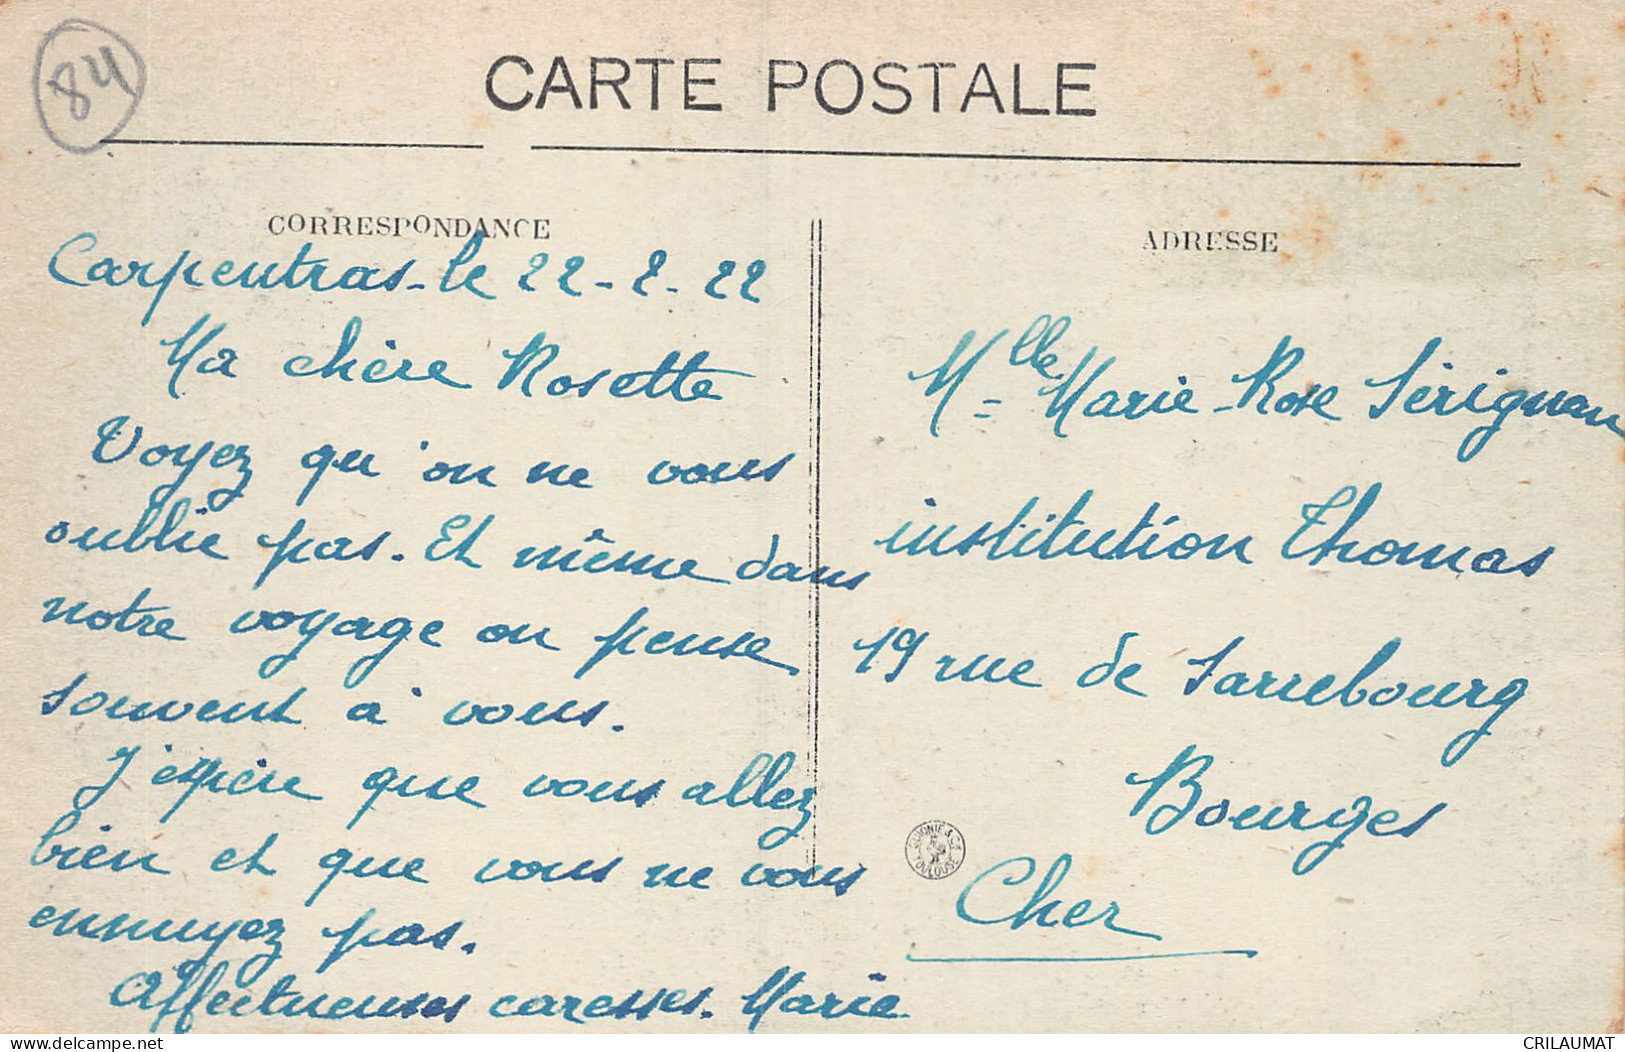 84
CARTE POSTALE
CORRESPONDANCE
Carpentras. le 22-2-22
Ma chère Rosette
Voyez qu'on ne vous
oublie pas. Et même dans
notre voyage on pense
souvent à vous.
J'espère que vous allez
bien et que vous ne vous
ennuyez pas.
Affectueuses caresses. Marie
ADRESSE
Mlle Marie-Rose Sérignan
institution Thomas
19 rue de Sarrebourg
Bourges
Cher
TOULOUSE
www.delcampe.net
CRILAUMAT